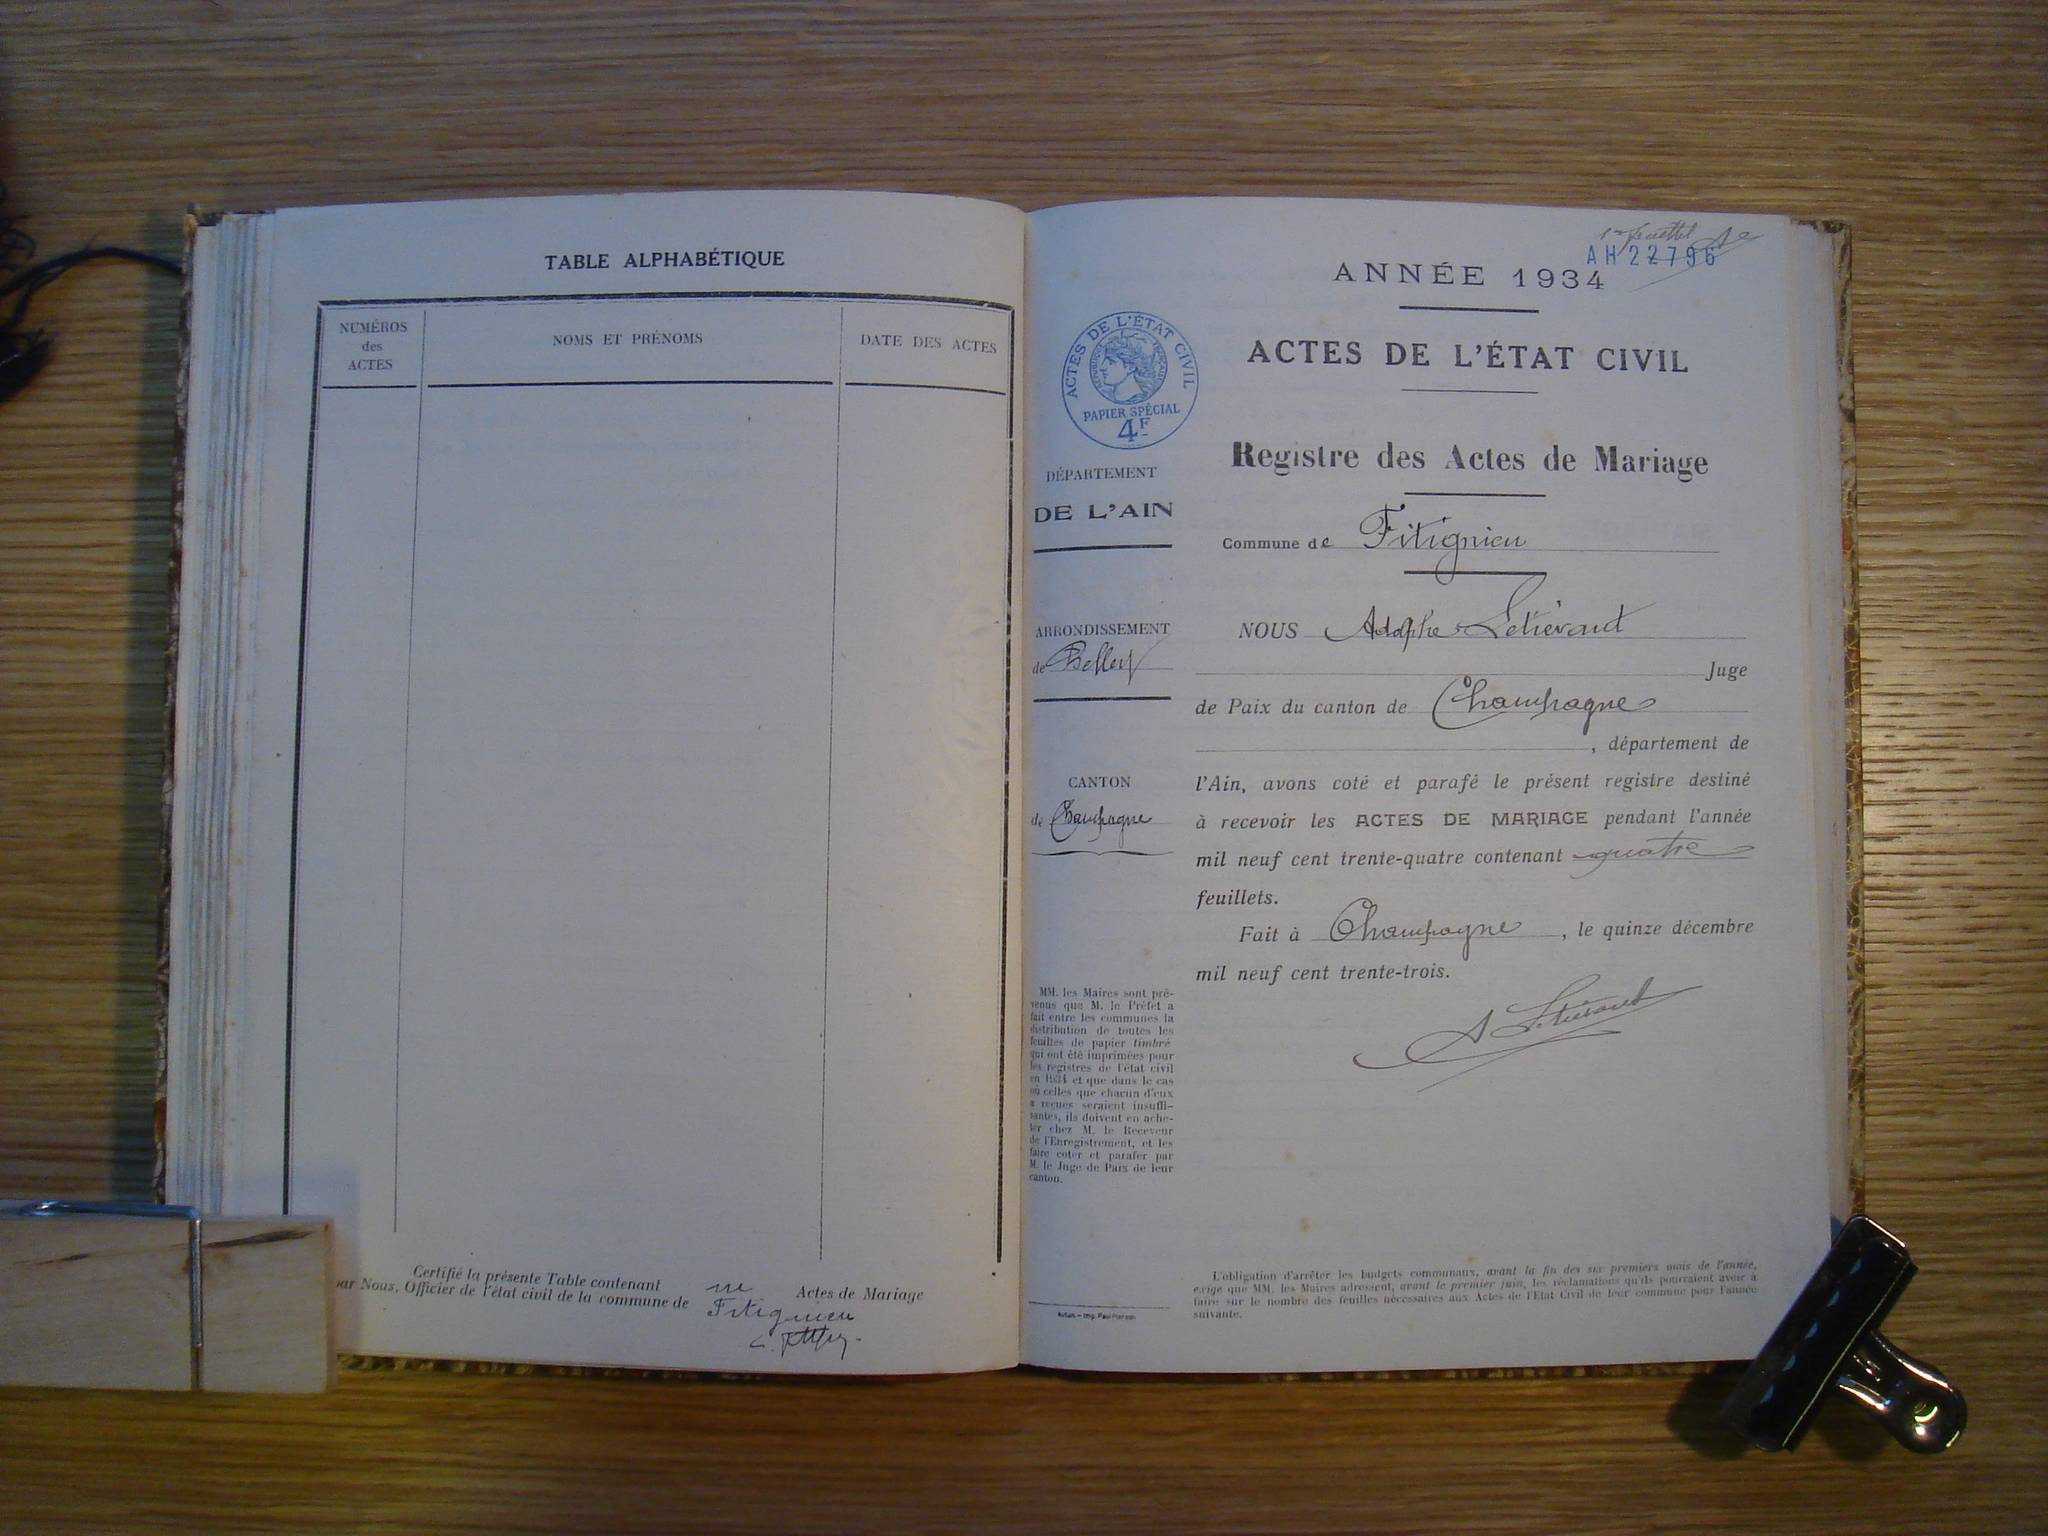 TABLE ALPHABÉTIQUE
NUMÉROS
des
ACTES
NOMS ET PRÉNOMS
DATE DES ACTES
Certifié la présente Table contenant Actes de Mariage
par Nous, Officier de l'état civil de la commune de Fitignieu
AH 22796
ANNÉE 1934
ACTES DE L'ÉTAT CIVIL
Registre des Actes de Mariage
Commune de Fitignieu
NOUS Adolphe Létiévant
Juge
de Paix du canton de Champagne
, département de
l'Ain, avons coté et parafé le présent registre destiné
à recevoir les ACTES DE MARIAGE pendant l'année
mil neuf cent trente-quatre contenant quatre
feuillets.
Fait à Champagne, le quinze décembre
mil neuf cent trente-trois.
A Létiévant
ACTES DE L'ÉTAT CIVIL
RÉPUBLIQUE FRANÇAISE
PAPIER SPÉCIAL
4F
DÉPARTEMENT
DE L'AIN
ARRONDISSEMENT
de Belley
CANTON
de Champagne
MM. les Maires sont pré-
venus que M. le Préfet a
fait entre les communes la
distribution de toutes les
feuilles de papier timbré
qui ont été imprimées pour
les registres de l'état civil
en 1934 et que dans le cas
où celles que chacun d'eux
a reçues seraient insuffi-
santes, ils doivent en ache-
ter chez M. le Receveur
de l'Enregistrement, et les
faire coter et parafer par
M. le Juge de Paix de leur
canton.
L'obligation d'arrêter les budgets communaux, avant la fin des six premiers mois de l'année,
exige que MM. les Maires adressent, avant le premier juin, les réclamations qu'ils pourraient avoir à
faire sur le nombre des feuilles nécessaires aux Actes de l'Etat Civil de leur commune pour l'année
suivante.